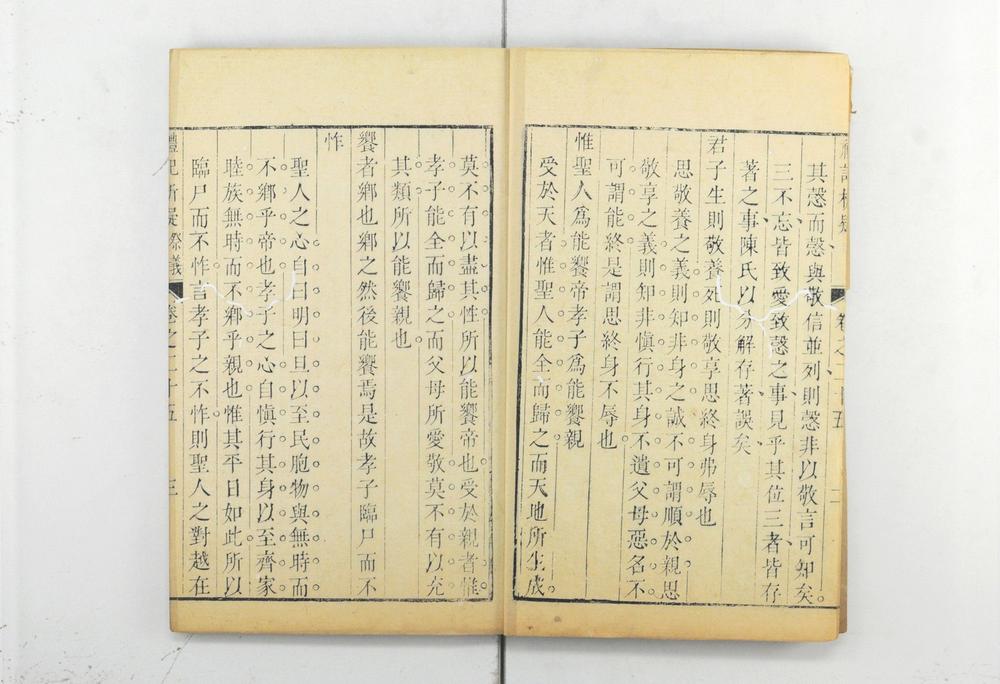 其愨而愨與敬信並列則愨非以敬言可知矣
三不忘皆致愛致愨之事見乎其位三者皆存
著之事陳氏以分解存著誤矣
君子生則敬養死則敬享思終身弗辱也
思敬養之義則知非身之誠不可謂順於親思
敬享之義則知非愼行其身不遺父母惡名不
可謂能終是謂思終身不辱也
惟聖人爲能饗帝孝子爲能饗親
受於天者惟聖人能全而歸之而天地所生成
莫不有以盡其性所以能饗帝也受於親者惟
孝子能全而歸之而父母所愛敬莫不有以充
其類所以能饗親也
饗者鄉也鄉之然後能饗焉是故孝子臨尸而不
怍
聖人之心自曰明曰旦以至民胞物與無時而
不鄉乎帝也孝子之心自愼行其身以至齊家
睦族無時而不鄉乎親也惟其平日如此所以
臨尸而不怍言孝子之不怍則聖人之對越在
卷之二十五 三